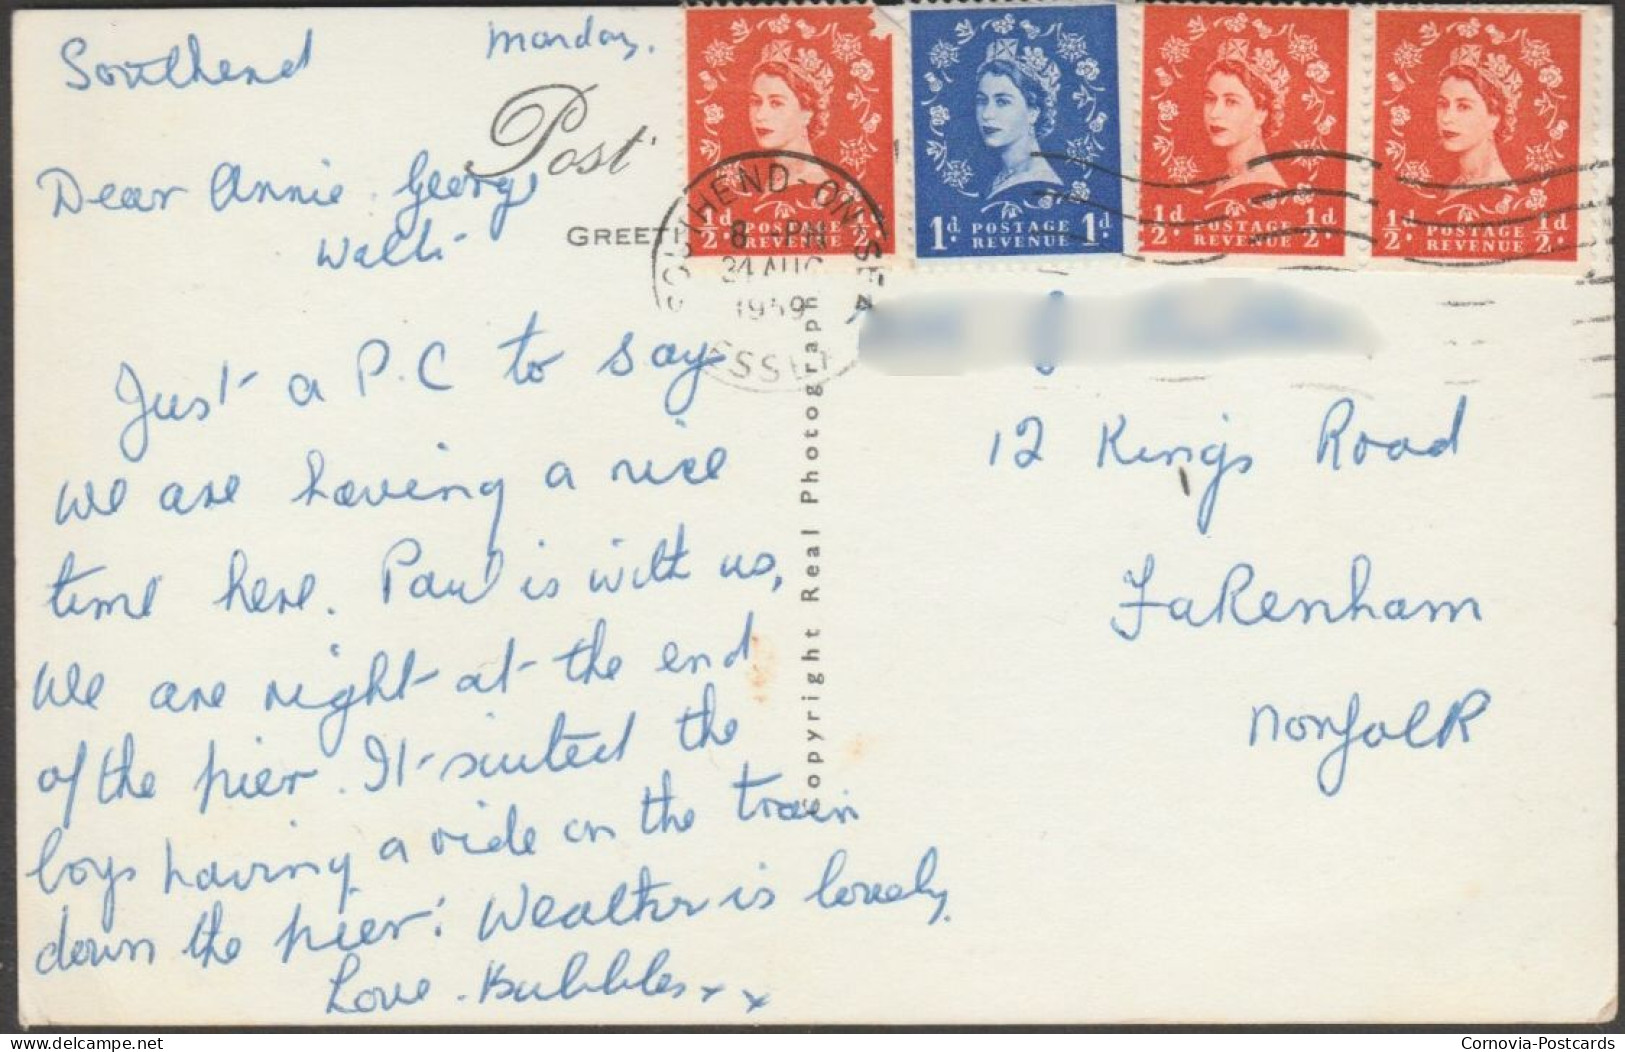 Southend
Monday.
Post
GREETI
Dear Annie. George
Walli-
Just a P.C to say
we are having a nice
time here. Paul is with us,
We are right at the end
of the pier. It suited the
boys having a ride on the train
down the pier. Weather is lovely.
Love. Bubbles x x
½d ½d
POSTAGE
REVENUE
1d 1d
POSTAGE
REVENUE
½d ½d
POSTAGE
REVENUE
½d ½d
POSTAGE
REVENUE
SOUTHEND-ON-SEA
8 -PM
24 AUG
1959
ESSEX
Copyright Real Photograph
12 Kings Road
Fakenham
Norfolk
delcampe.net
Cornovia-Postcards